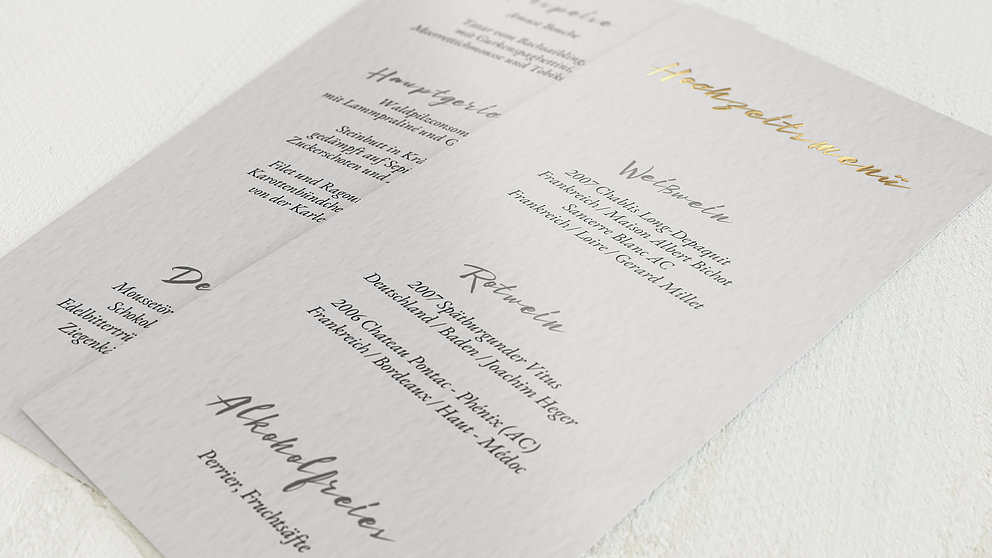 Hochzeitsmenü
Weißwein
2007 Chablis Long-Depaquit
Frankreich / Maison Albert Bichot
Sancerre Blanc AC
Frankreich / Loire / Gerard Millet
Rotwein
2007 Spätburgunder Vitus
Deutschland / Baden / Joachim Heger
2006 Chateau Pontac - Phénix (AC)
Frankreich / Bordeaux / Haut - Médoc
Alkoholfreies
Perrier, Fruchtsäfte
Amuse Bouche
Tatar vom Bachsaibling,
mit Gurkenspaghettini,
Meerrettichmousse und Tobiko
Hauptgeric
Waldpilzconsom
mit Lammpraline und G
Steinbutt in Krä
gedämpft auf Sepi
Zuckerschoten und
Filet und Ragou
Karottenbündche
von der Karle
De
Moussetör
Schokol
Edelbittertrü
Ziegenkä